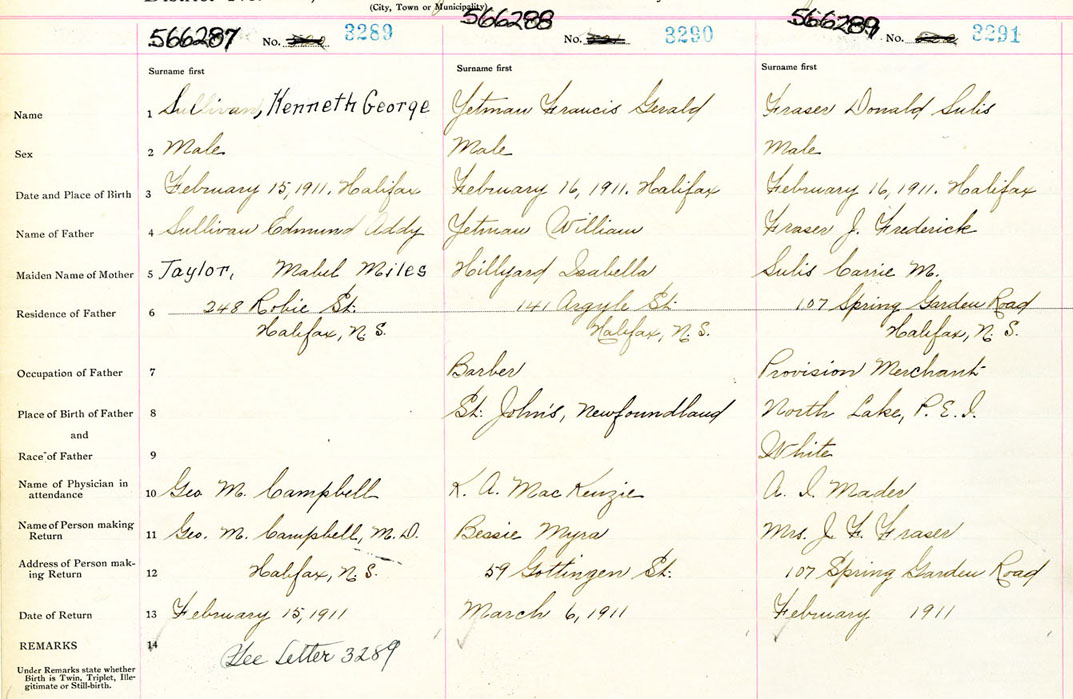 (City, Town or Municipality)
566287 No. 3289 566288 No. 3290 566289 No. 3291
Surname first Surname first Surname first
Name 1 Sullivan, Kenneth George Yetman Francis Gerald Fraser Donald Sulis
Sex 2 Male Male Male
Date and Place of Birth 3 February 15, 1911. Halifax February 16, 1911. Halifax February 16, 1911. Halifax
Name of Father 4 Sullivan Edmund Addy Yetman William Fraser J. Frederick
Maiden Name of Mother 5 Taylor, Mabel Miles Hillyard Isabella Sulis Carrie M.
Residence of Father 6 248 Robie St. 141 Argyle St. 107 Spring Garden Road
Halifax, N.S. Halifax, N.S. Halifax, N.S.
Occupation of Father 7 Barber Provision Merchant
Place of Birth of Father 8 St. John's, Newfoundland North Lake, P.E.I.
and
Race of Father 9 White
Name of Physician in
attendance 10 Geo. M. Campbell K. A. MacKenzie A. I. Mader
Name of Person making
Return 11 Geo. M. Campbell, M.D. Bessie Myra Mrs. J. F. Fraser
Address of Person mak-
ing Return 12 Halifax, N.S. 59 Gottingen St. 107 Spring Garden Road
Date of Return 13 February 15, 1911 March 6, 1911 February 1911
REMARKS 14 See Letter 3289
Under Remarks state whether
Birth is Twin, Triplet, Ille-
gitimate or Still-birth.